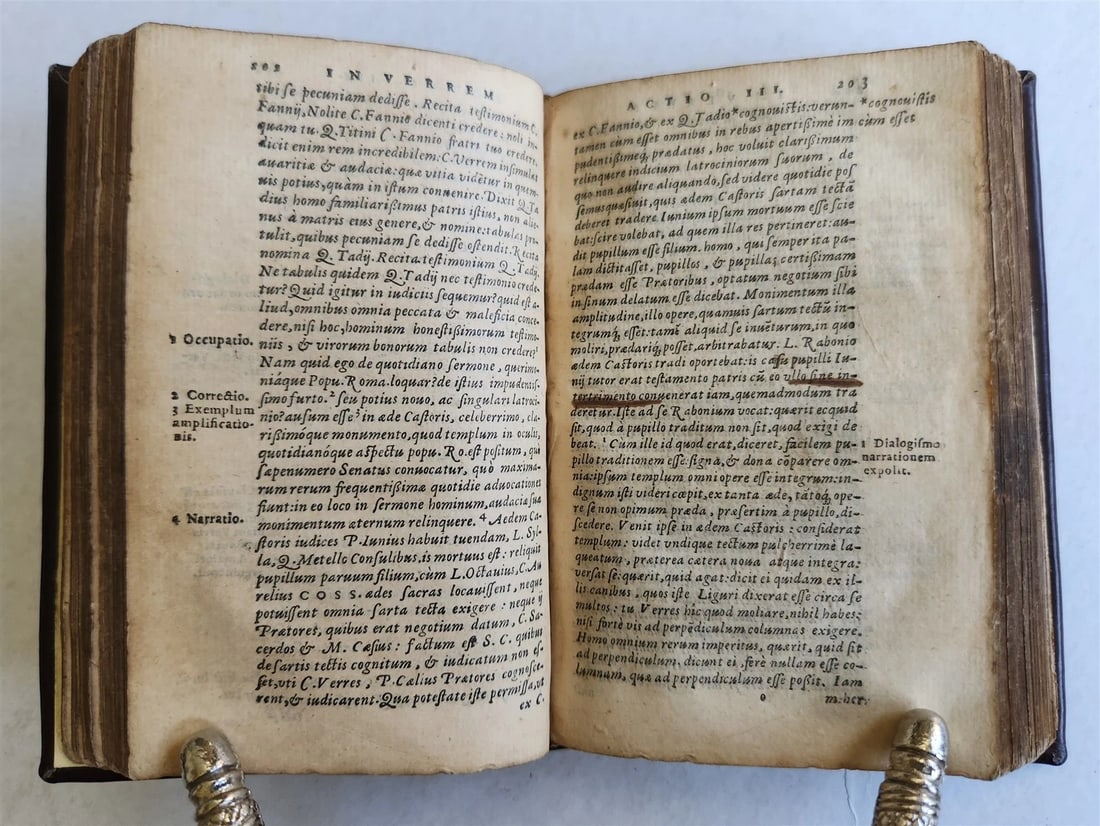 202 IN VERREM
tibi se pecuniam dedisse. Recita testimonium C.
Fannij. Nolite C. Fannio dicenti credere: noli in-
quam tu Q. Titini C. Fannio fratri tuo credere,
dicit enim rem incredibilem: C. Verrem insimulat
auaritiæ & audaciæ: quæ vitia videtur in quem-
uis potius, quàm in istum conuenire. Dixit Q. Ta
dius homo familiarißimus patris istius, non alie-
nus à matris eius genere, & nomine: tabulas pro-
tulit, quibus pecuniam se dedisse ostendit. Recita
nomina Q. Tadij. Recita testimonium Q. Tadij.
Ne tabulis quidem Q. Tadij nec testimonio crede-
tur? Quid igitur in iudiciis sequemur? quid est a-
liud, omnibus omnia peccata & maleficia conce-
dere, nisi hoc, hominum honestißimorum testimo-
1 Occupatio. niis, & virorum bonorum tabulis non credere?¹
Nam quid ego de quotidiano sermone, querimo-
niáque Popu. Roma. loquar? de istius impudentis-
2 Correctio. simo furto.² seu potius nouo, ac singulari latroci-
3 Exemplum nio? ausum esse³ in æde Castoris, celeberrimo, cla-
amplificatio- rißimóque monumento, quod templum in oculis,
nis. quotidianóque aspectu popu. Ro. est positum, quo
sæpenumero Senatus conuocatur, quò maxima-
rum rerum frequentißimæ quotidie aduocationes
fiunt: in eo loco in sermone hominum, audaciæ suæ
4 Narratio. monimentum æternum relinquere. ⁴ Aedem Ca-
storis iudices P. Iunius habuit tuendam, L. Syl-
la, Q. Metello Consulibus. is mortuus est: reliquit
pupillum paruum filium, cùm L. Octauius, C. Au
relius COSS. ædes sacras locauissent, neque
potuissent omnia sarta tecta exigere: neque ij
Prætores, quibus erat negotium datum, C. Sa-
cerdos & M. Cæsius: factum est S. C. quibus
de sartis tectis cognitum, & iudicatum non es-
set, vti C. Verres, P. Cælius Prætores cognosce-
rent, & iudicarent. Qua potestate iste permissa, vt
ex C.
ACTIO III. 203
ex C. Fannio, & ex Q. Tadio *cognouistis: verun- *cognouistis
tamen cum esset omnibus in rebus apertißimè im cùm esset
pudentißimeq́; prædatus, hoc voluit clarißimum
relinquere indicium latrociniorum suorum, de
quo non audire aliquando, sed videre quotidie pos
semus. quæsiuit, quis ædem Castoris sartam tectā
deberet tradere. Iunium ipsum mortuum esse scie
bat: scire volebat, ad quem illa res pertineret: au-
dit pupillum esse filium. homo, qui semper ita pa-
lam dictitasset, pupillos, & pupillas certißimam
prædam esse Prætoribus, optatum negotium sibi
in sinum delatum esse dicebat. Monimentum illa
amplitudine, illo opere, quamuis sartum tectū in-
tegrumq́; esset: tamē aliquid se inuēturum, in quo
moliri, prædariq́; posset, arbitrabatur. L. Rabonio
ædem Castoris tradi oportebat: is casu pupilli Iu-
nij tutor erat testamento patris cū eo vllo sine in-
tertrimento conuenerat iam, quemadmodum tra
deretur. Iste ad se Rabonium vocat: quærit ecquid
sit, quod à pupillo traditum non sit, quod exigi de
beat. ¹ Cum ille id quod erat, diceret, facilem pu- 1 Dialogismo
pillo traditionem esse: signa, & dona cōparere om- narrationem
nia: ipsum templum omni opere esse integrum: in- expolit.
dignum isti videri cœpit, ex tanta æde, tātoq́; ope-
re se non opimum præda, præsertim à pupillo, di-
scedere. Venit ipse in ædem Castoris: considerat
templum: videt vndique tectum pulcherrimè la-
queatum, præterea cætera noua atque integra:
versat se: quærit, quid agat: dicit ei quidam ex il-
lis canibus, quos iste Liguri dixerat esse circa se
multos: tu Verres hic quod moliare, nihil habes:
nisi fortè vis ad perpēdiculum columnas exigere.
Homo omnium rerum imperitus, quærit, quid sit
ad perpendiculum. dicunt ei, ferè nullam esse co-
lumnam, quæ ad perpendiculum esse poßit. Iam
o